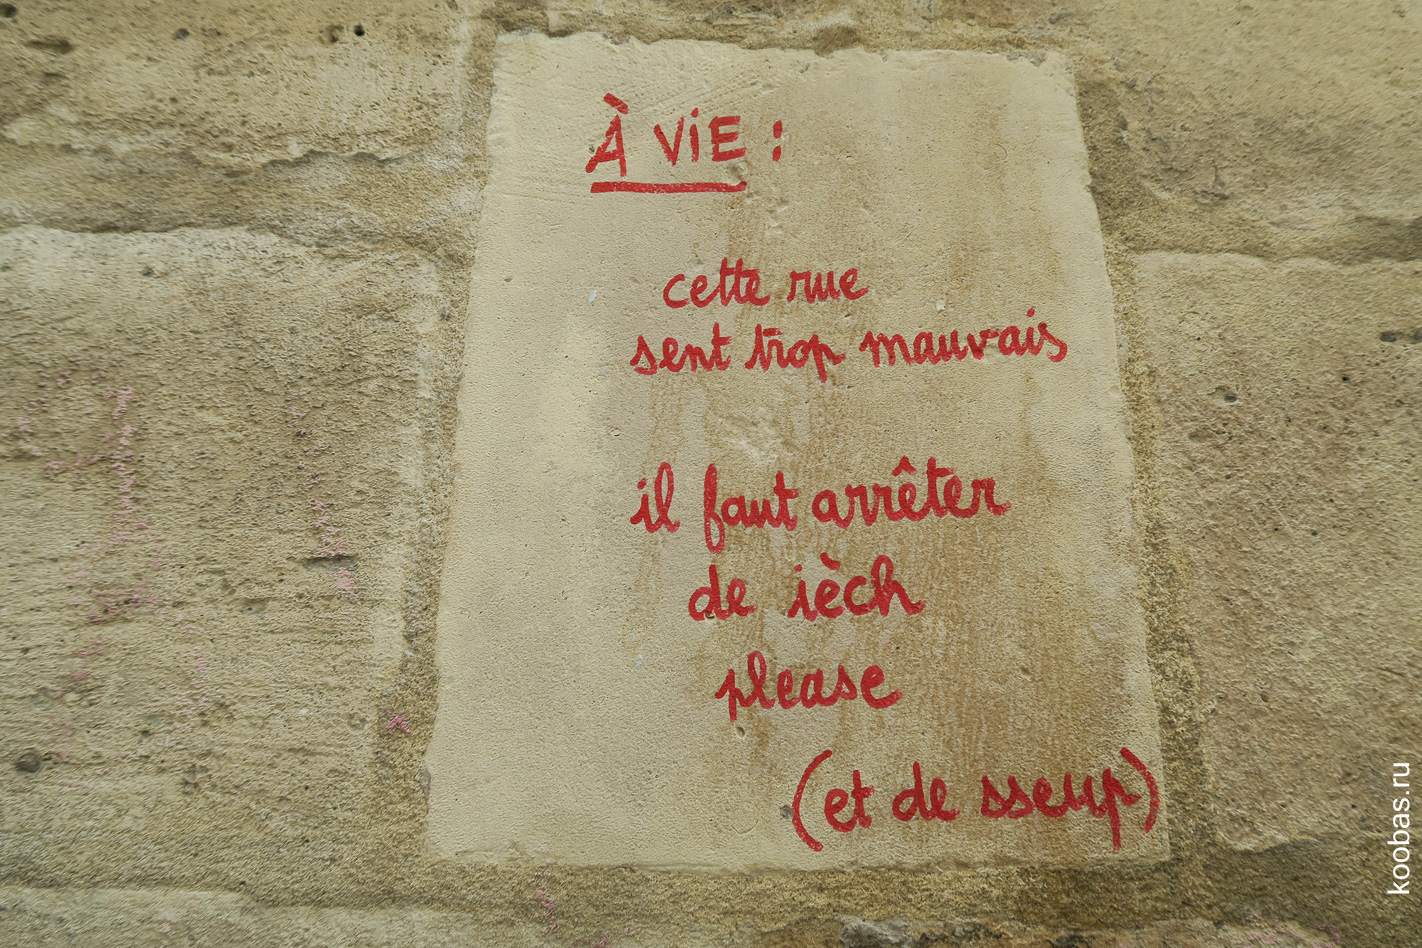 À ViE :
cette rue
sent trop mauvais
il faut arrêter
de ièch
please
(et de sseup)
koobas.ru